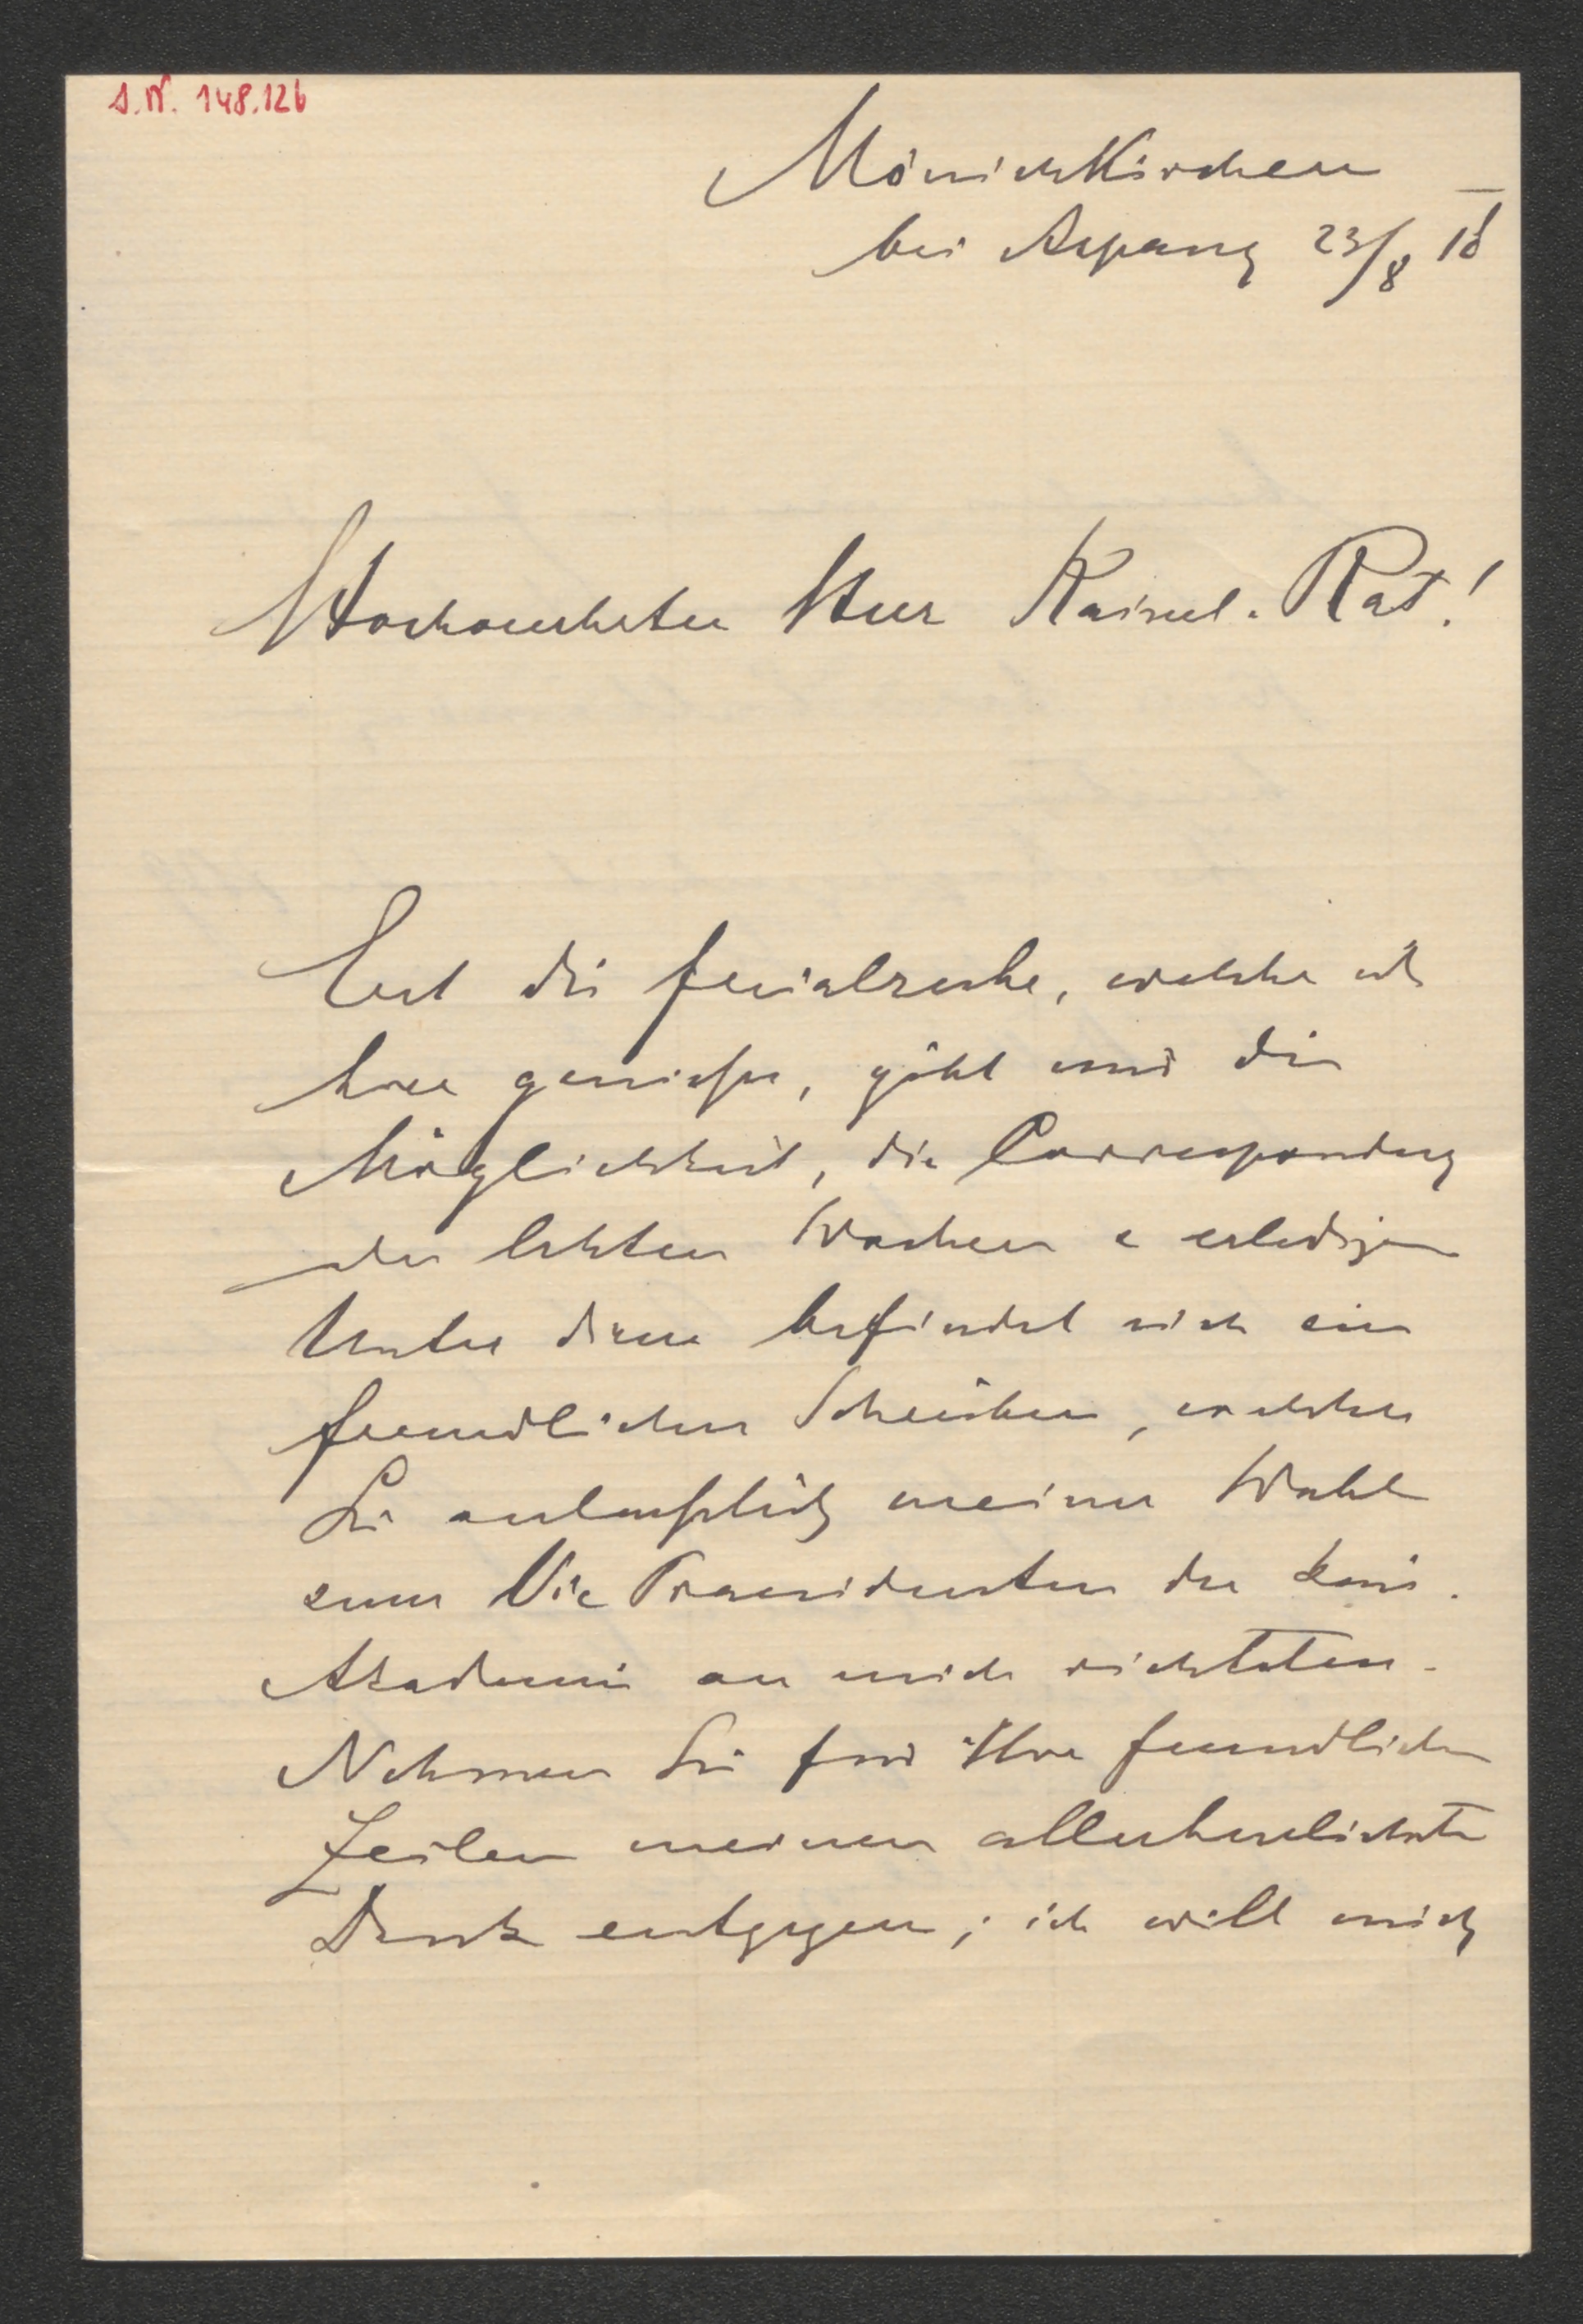 I.N. 148.126
Mönichkirchen
bei Aspang 23/8 18
Hochverehrter Herr Kaiserl. Rat!
Erst die Ferialruhe, welche ich
hier genieße, gibt mir die
Möglichkeit, die Correspondenz
der letzten Wochen z erledigen
Unter dieser befindet sich ein
freundliches Schreiben, welches
Sie anlässlich meiner Wahl
zum Vice Praesidenten der kais.
Akademie an mich richteten.
Nehmen Sie für Ihre freundlichen
Zeilen meinen allerherzlichsten
Dank entgegen; ich will mich